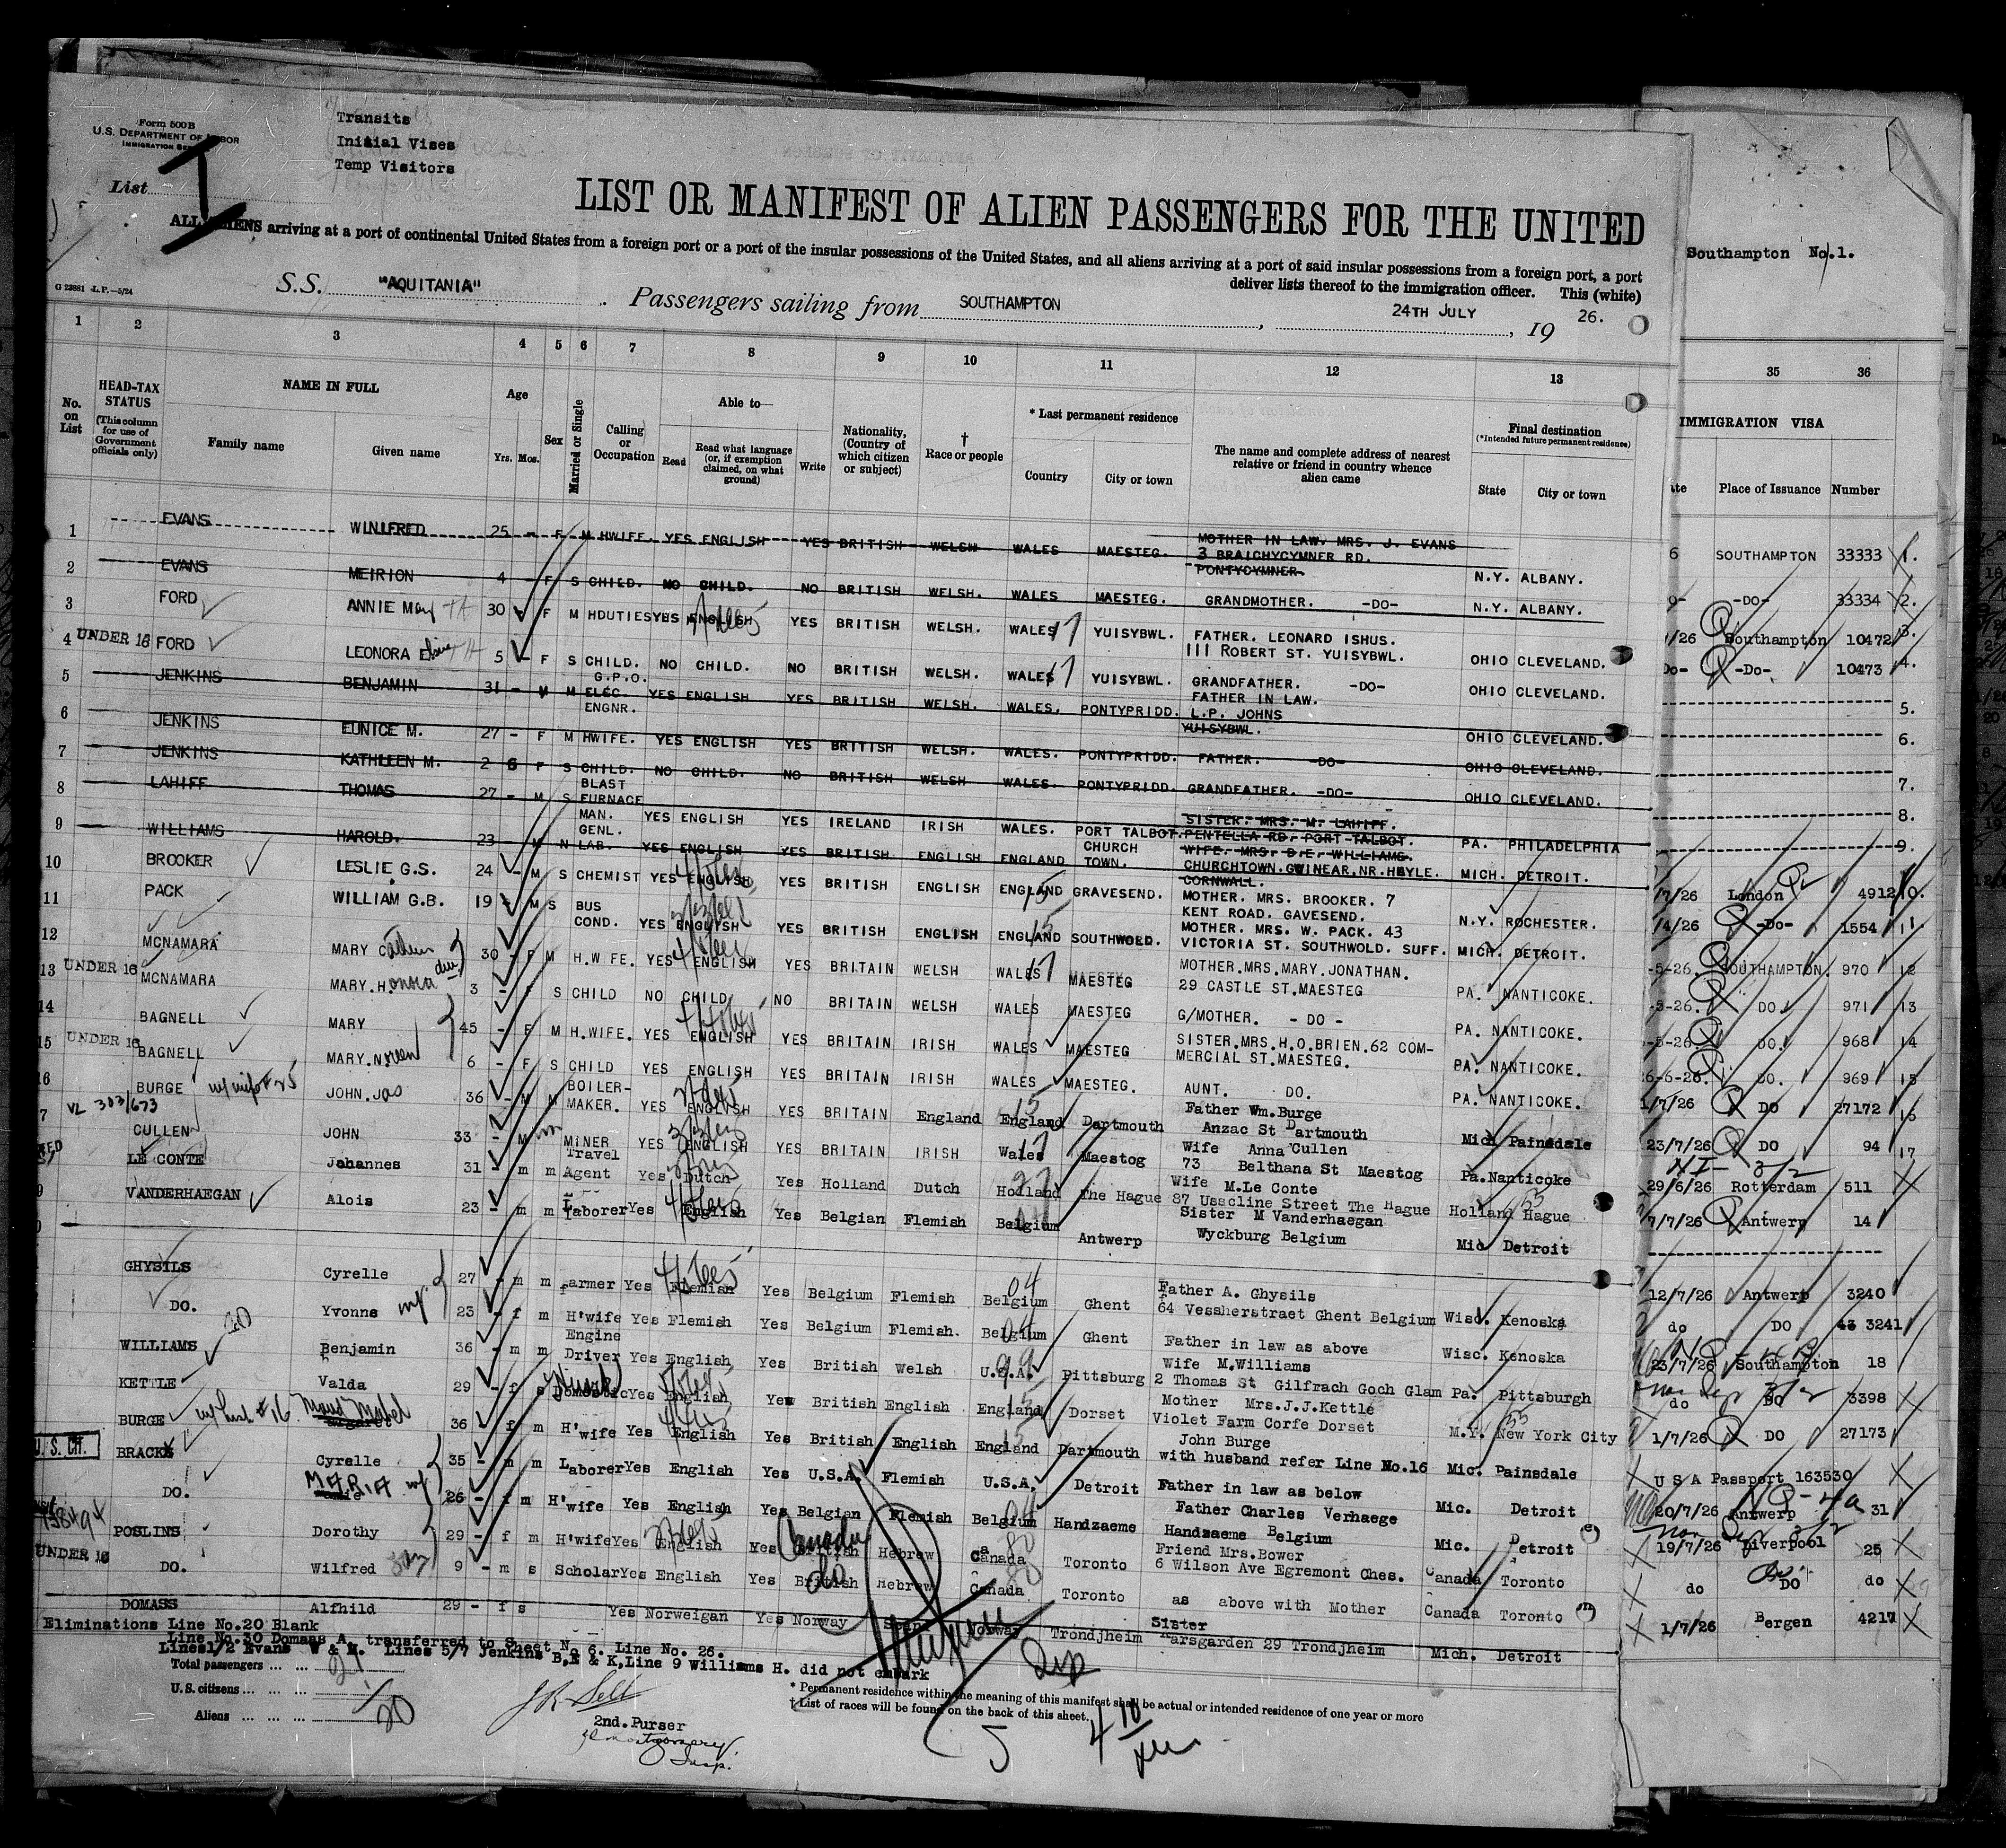 Form 500 B
U.S. DEPARTMENT OF LABOR
IMMIGRATION SERVICE
Transits
Initial Vises
Temp Visitors
List I
LIST OR MANIFEST OF ALIEN PASSENGERS FOR THE UNITED
ALL ALIENS arriving at a port of continental United States from a foreign port or a port of the insular possessions of the United States, and all aliens arriving at a port of said insular possessions from a foreign port, a port
deliver lists thereof to the immigration officer. This (white)
Southampton No.1.
G 23881 -L.P.-5/24
S.S. "AQUITANIA" Passengers sailing from SOUTHAMPTON, 24TH JULY, 19 26.
1 2 3 4 5 6 7 8 9 10 11 12 13 35 36
No. on List
HEAD-TAX STATUS (This column for use of Government officials only)
NAME IN FULL
Family name Given name
Age Yrs. Mos.
Sex
Married or Single
Calling or Occupation
Able to— Read Read what language (or, if exemption claimed, on what ground) Write
Nationality, (Country of which citizen or subject)
† Race or people
* Last permanent residence Country City or town
The name and complete address of nearest relative or friend in country whence alien came
Final destination (*Intended future permanent residence) State City or town
IMMIGRATION VISA
Place of Issuance Number
1 EVANS WINIFRED 25 - F M HWIFE. YES ENGLISH YES BRITISH WELSH WALES MAESTEG. MOTHER IN LAW. MRS. J. EVANS 3 BRAICHYCYMNER RD. PONTYCYMNER. N.Y. ALBANY. 6 SOUTHAMPTON 33333 1.
2 EVANS MEIRION 4 - F S CHILD. NO CHILD. NO BRITISH WELSH. WALES MAESTEG. GRANDMOTHER. -DO- N.Y. ALBANY. -DO- 33334 2.
3 FORD ANNIE May 30 - F M HDUTIES YES ENGLISH YES BRITISH WELSH. WALES 17 YUISYBWL. FATHER. LEONARD ISHUS. 111 ROBERT ST. YUISYBWL. OHIO CLEVELAND. /26 Southampton 10472 3.
4 UNDER 16 FORD LEONORA Elsie 5 - F S CHILD. NO CHILD. NO BRITISH WELSH. WALES 17 YUISYBWL. GRANDFATHER. -DO- OHIO CLEVELAND. Do- -Do- 10473 4.
5 JENKINS BENJAMIN 31 - M M G.P.O. ELEC. ENGNR. YES ENGLISH YES BRITISH WELSH. WALES. PONTYPRIDD. FATHER IN LAW. L.P. JOHNS YUISYBWL. OHIO CLEVELAND. 5.
6 JENKINS EUNICE M. 27 - F M HWIFE. YES ENGLISH YES BRITISH WELSH. WALES. PONTYPRIDD. FATHER. -DO- OHIO CLEVELAND. 6.
7 JENKINS KATHLEEN M. 2 6 F S CHILD. NO CHILD. NO BRITISH WELSH WALES. PONTYPRIDD. GRANDFATHER. -DO- OHIO CLEVELAND. 7.
8 LAHIFF THOMAS 27 - M S BLAST FURNACE MAN. YES ENGLISH YES IRELAND IRISH WALES. PORT TALBOT. SISTER. MRS. M. LAHIFF. PENTELLA RD. PORT TALBOT. PA. PHILADELPHIA 8.
9 WILLIAMS HAROLD. 23 - M M GENL. LAB. YES ENGLISH YES BRITISH ENGLISH ENGLAND CHURCH TOWN. WIFE. MRS. B.E. WILLIAMS. CHURCHTOWN. GWINEAR. NR. HAYLE. CORNWALL. MICH. DETROIT. 9.
10 BROOKER LESLIE G.S. 24 - M S CHEMIST YES ENGLISH YES BRITISH ENGLISH ENGLAND 15 GRAVESEND. MOTHER. MRS. BROOKER. 7 KENT ROAD. GAVESEND. N.Y. ROCHESTER. /7/26 London 4912 10.
11 PACK WILLIAM G.B. 19 - M S BUS COND. YES ENGLISH YES BRITISH ENGLISH ENGLAND 15 SOUTHWOLD. MOTHER. MRS. W. PACK. 43 VICTORIA ST. SOUTHWOLD. SUFF. MICH. DETROIT. /4/26 -Do- 1554 11.
12 MCNAMARA MARY 30 - F M H.WIFE. YES ENGLISH YES BRITAIN WELSH WALES 17 MAESTEG MOTHER.MRS.MARY.JONATHAN. 29 CASTLE ST.MAESTEG PA. NANTICOKE. -5-26. SOUTHAMPTON. 970 12
13 UNDER 16 MCNAMARA MARY.Honora 3 - F S CHILD NO CHILD NO BRITAIN WELSH WALES MAESTEG G/MOTHER. - DO - PA. NANTICOKE. -5-26. DO. 971 13
14 BAGNELL MARY 45 - F M H.WIFE. YES ENGLISH YES BRITAIN IRISH WALES MAESTEG SISTER.MRS.H.O.BRIEN.62 COMMERCIAL ST.MAESTEG. PA. NANTICOKE. -5-26. DO. 968 14
15 UNDER 16 BAGNELL MARY.Noreen 6 - F S CHILD YES ENGLISH YES BRITAIN IRISH WALES MAESTEG. AUNT. DO. PA. NANTICOKE. 6-5-26. DO. 969 15
16 BURGE JOHN.Jas 36 - M M BOILER-MAKER. YES ENGLISH YES BRITAIN England England 15 Dartmouth Father Wm.Burge Anzac St Dartmouth Mich Painsdale 1/7/26 DO 27172 16
17 VL 303/673 CULLEN JOHN 33 - M m MINER YES ENGLISH YES BRITAIN IRISH Wales 17 Maestog Wife Anna Cullen 73 Belthana St Maestog Pa.Nanticoke 23/7/26 DO 94 17
LE CONTE Johannes 31 - m m Travel Agent Yes Dutch Yes Holland Dutch Holland The Hague Wife M.Le Conte 87 Usscline Street The Hague Holland Hague 29/6/26 Rotterdam 511
VANDERHAEGAN Alois 23 - m m Laborer Yes English Yes Belgian Flemish Belgium Antwerp Sister M Vanderhaegan Wyckburg Belgium Mic Detroit 7/7/26 Antwerp 14
GHYSILS Cyrelle 27 - m m farmer Yes Flemish Yes Belgium Flemish Belgium 04 Ghent Father A. Ghysils 64 Vessherstraet Ghent Belgium Wisc. Kenoska 12/7/26 Antwerp 3240
DO. Yvonne wf 23 - f m H'wife Yes Flemish Yes Belgium Flemish. Belgium 04 Ghent Father in law as above Wisc. Kenoska do DO 3241
WILLIAMS Benjamin 36 - m m Engine Driver Yes English Yes British Welsh U.S.A. 99 Pittsburg Wife M.Williams 2 Thomas St Gilfrach Goch Glam Pa. Pittsburgh 23/7/26 Southampton 18
KETTLE Valda 29 - f s Domestic Yes English Yes British English England 15 Dorset Mother Mrs.J.J.Kettle Violet Farm Corfe Dorset N.Y. New York City do DO 3398
BURGE w/ husb #16 Maud Mabel 36 - f m H'wife Yes English Yes British English England 15 Dartmouth John Burge with husband refer Line No.16 Mic. Painsdale 1/7/26 DO 27173
U.S. CIT. BRACKX Cyrelle 35 - m m Laborer Yes English Yes U.S.A. Flemish U.S.A. Detroit Father in law as below Mic. Detroit U S A Passport 163530
DO. MARIA wf 26 - f m H'wife Yes English Yes Belgian Flemish Belgium 04 Handzaeme Father Charles Verhaege Handzaeme Belgium Mic. Detroit 20/7/26 Antwerp 31
POSLINS Dorothy 29 - f m H'wife Yes English Yes British Canada Hebrew Canada 80 Toronto Friend Mrs.Bower 6 Wilson Ave Egremont Ches. Canada Toronto 19/7/26 Liverpool 25
UNDER 16 DO. Wilfred 9 - m s Scholar Yes English Yes British do Hebrew Canada 80 Toronto as above with Mother Canada Toronto do DO do
DOMASS Alfhild 29 - f s Yes Norweigan Yes Norway Norway Trondjheim Sister Karsgarden 29 Trondjheim Mich. Detroit 1/7/26 Bergen 4217
Eliminations Line No.20 Blank
Line No.30 Domaas A. transferred to Sheet No 6. Line No. 26.
Lines1/2 Evans W & M. Lines 5/7 Jenkins B,E & K,Line 9 Williams H. did not embark
Total passengers ... ... 21
U.S. citizens ... ... 1
Aliens ... ... ... 20
J R Sell
2nd.Purser
Montgomery
Insp.
* Permanent residence within the meaning of this manifest shall be actual or intended residence of one year or more
† List of races will be found on the back of this sheet.
5